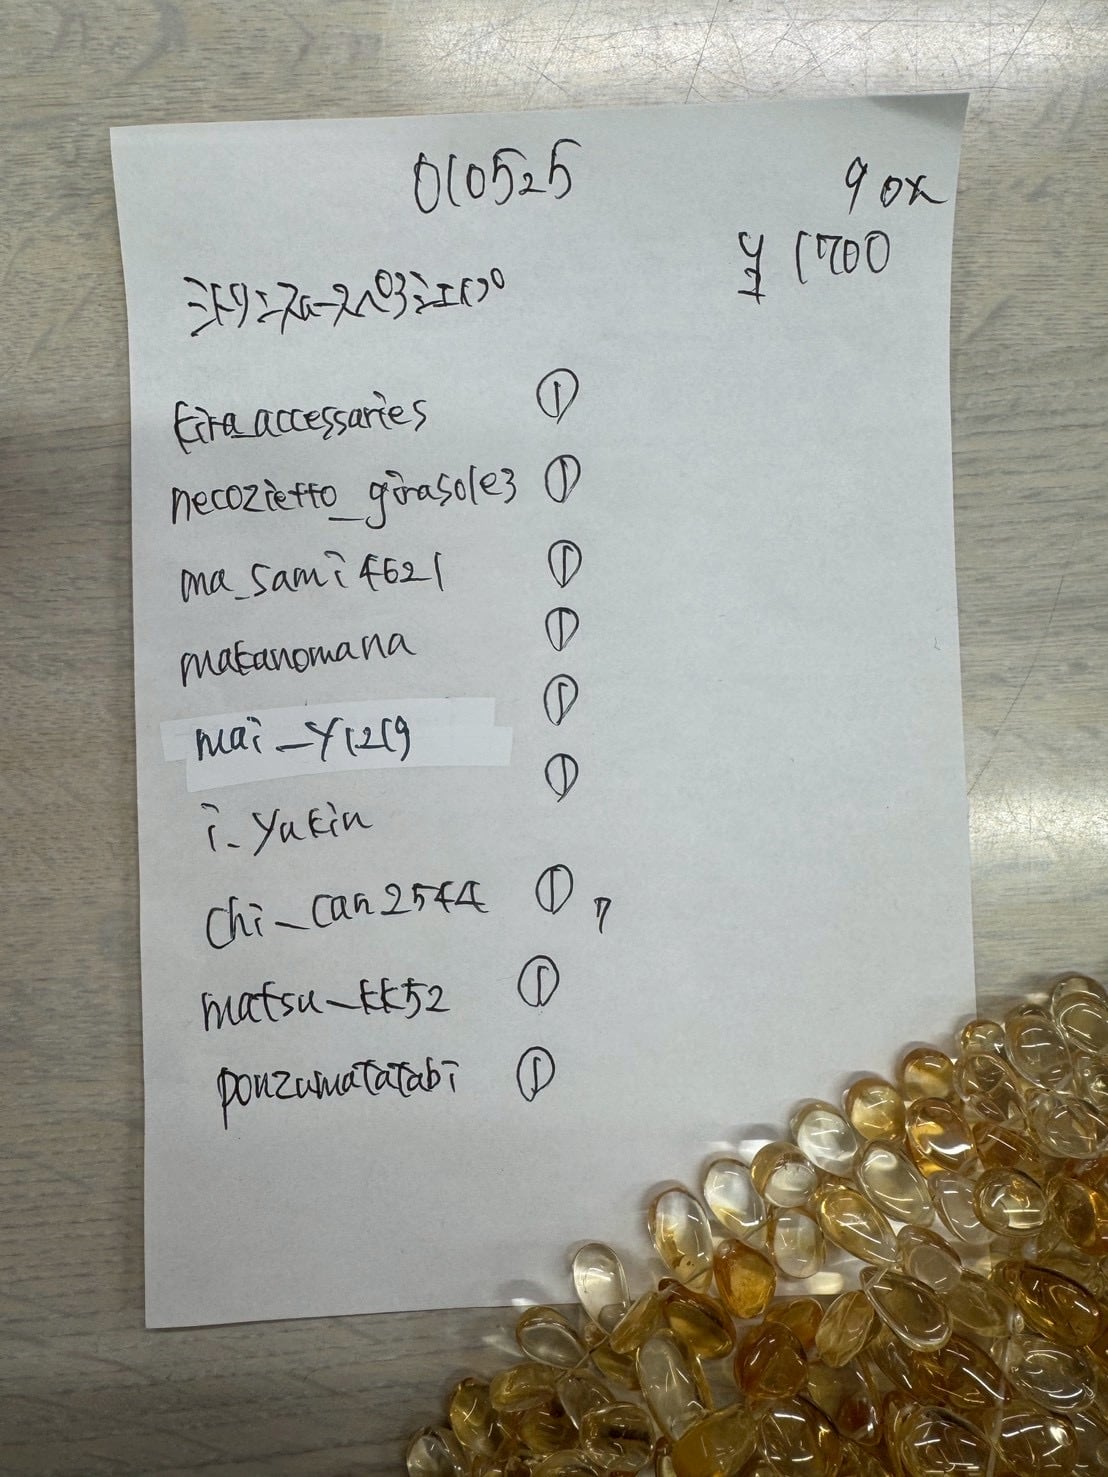 010525
90ct
¥1700
シトリンスムースペアシェイプ
kira_accessaries ①
necozietto_girasole3 ①
ma_sami4621 ①
makanomana ①
mai_y1219 ①
i_yukin ①
chi_can2544 ① 7
matsu_kk52 ①
ponzumatatabi ①